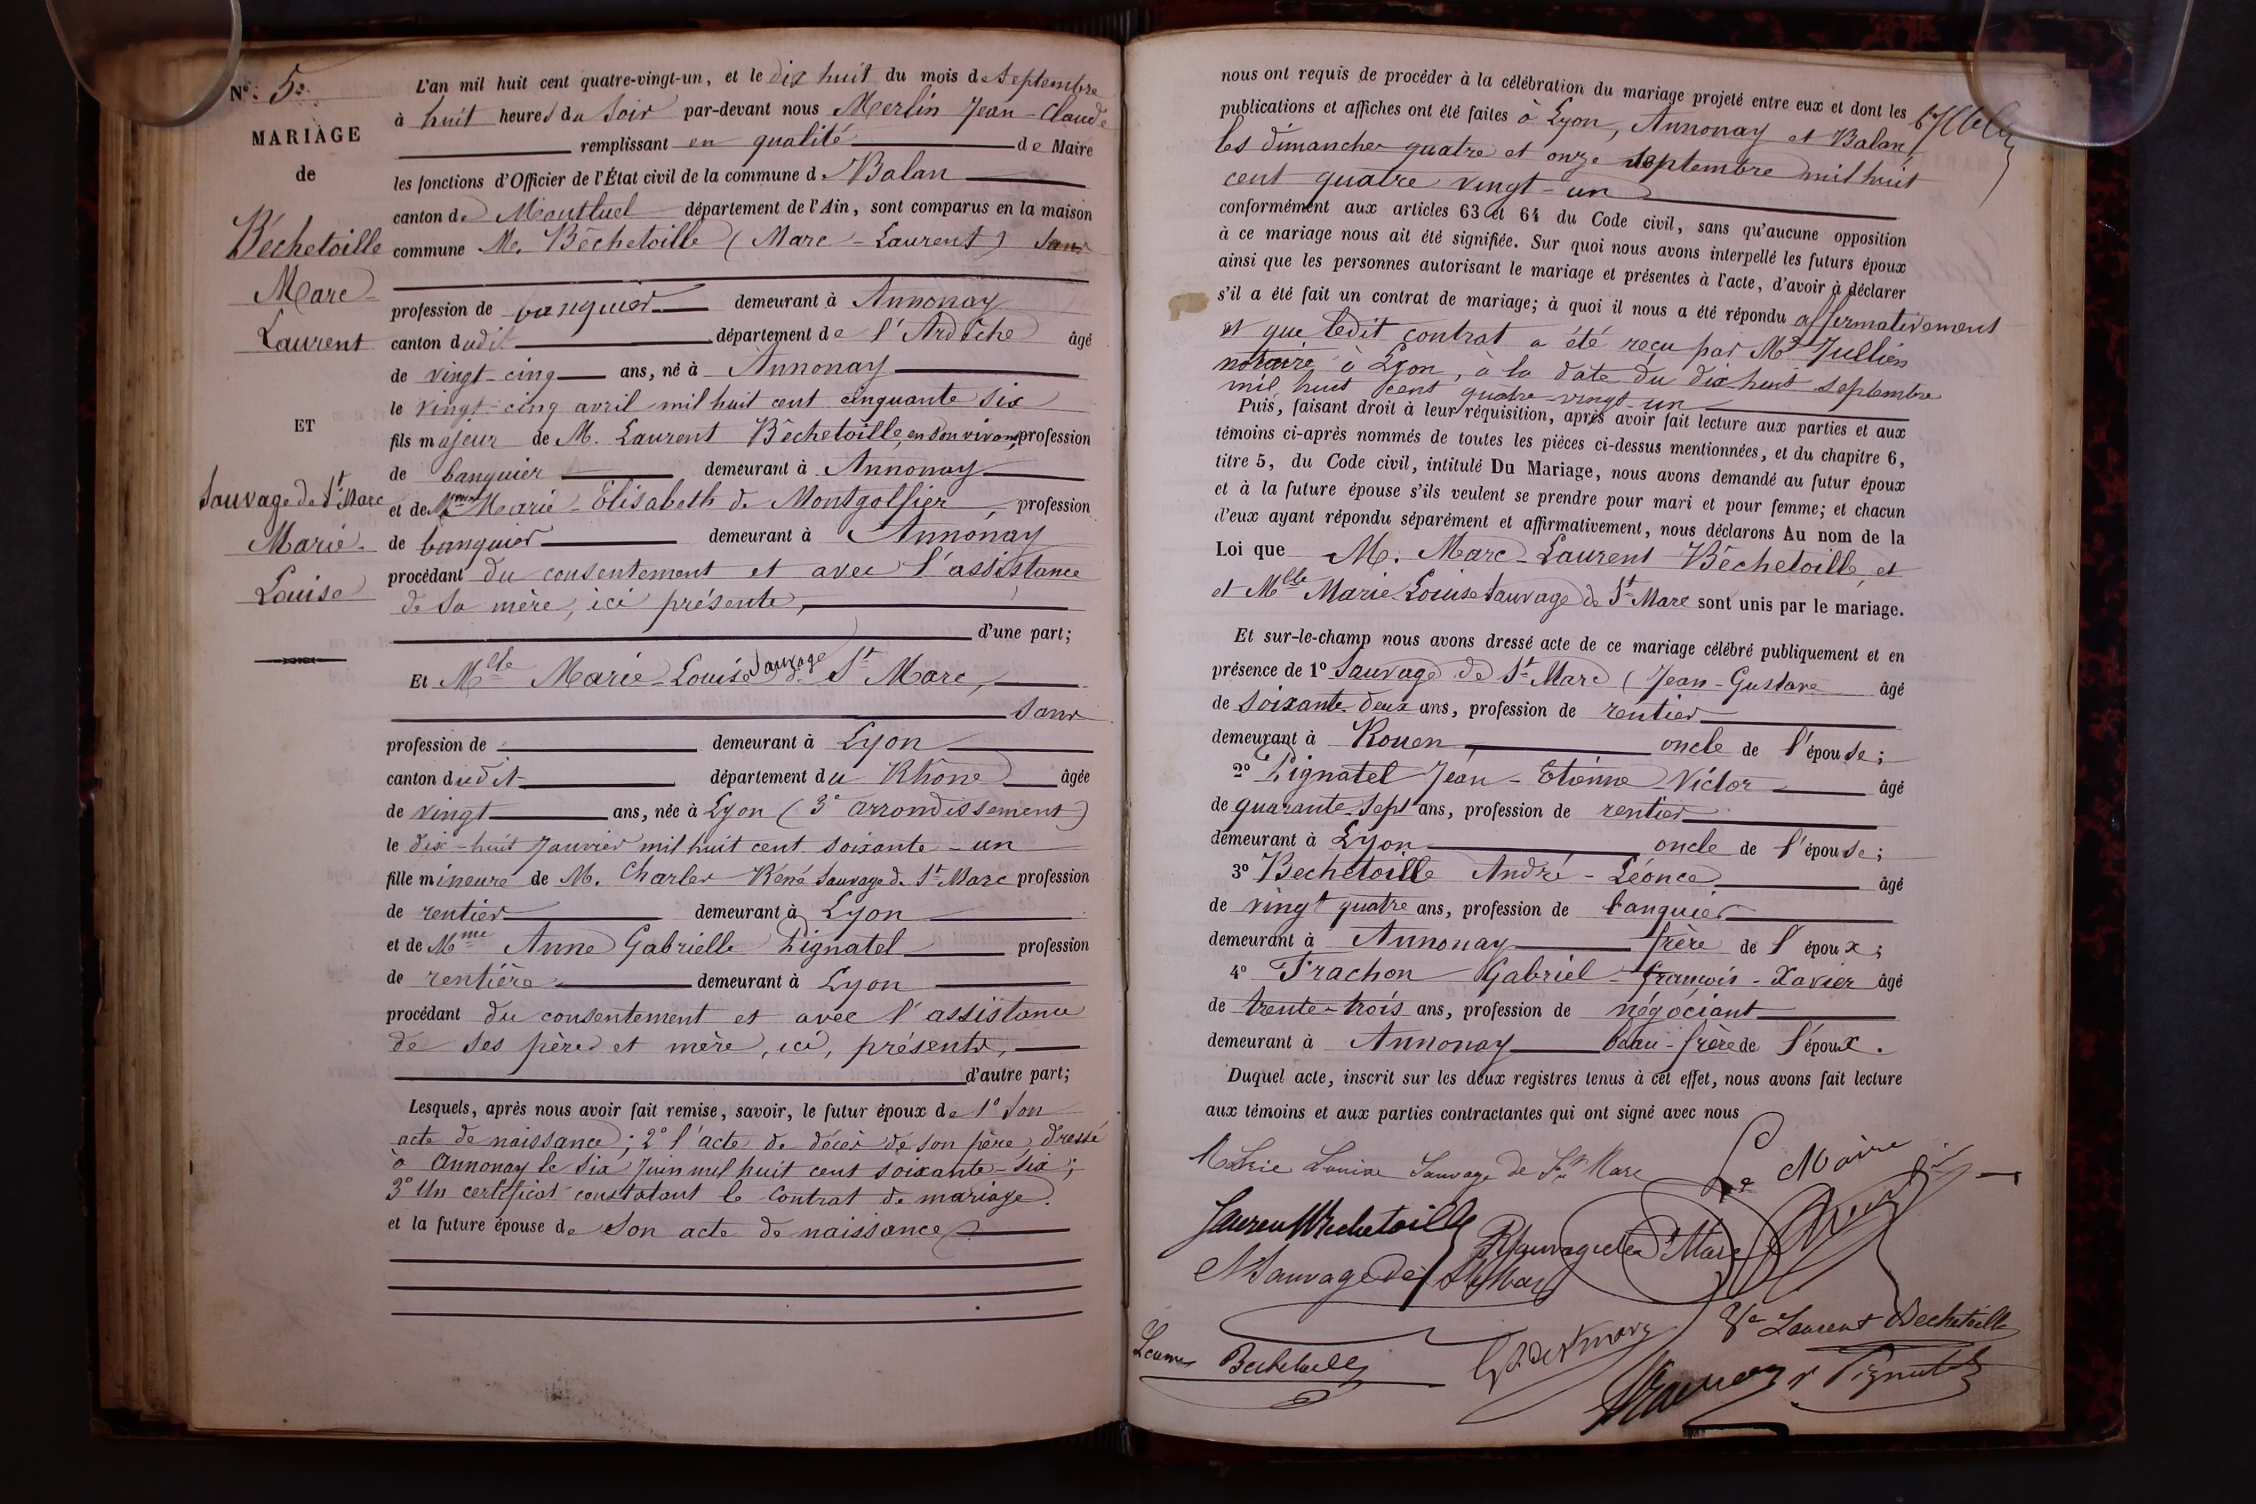 N° 5.
MARIAGE
de
Béchetoille
Marc
Laurent
ET
Sauvage de St Marc
Marie
Louise
L'an mil huit cent quatre-vingt-un, et le dix huit du mois de septembre
à huit heures du soir par-devant nous Merlin Jean-Claude
remplissant en qualité de Maire
les fonctions d'Officier de l'État civil de la commune d. Balan
canton de Montluel département de l'Ain, sont comparus en la maison
commune M. Béchetoille (Marc-Laurent) sans
profession de banquier demeurant à Annonay
canton dudit département de l'Ardèche âgé
de vingt-cinq ans, né à Annonay
le vingt-cinq avril mil huit cent cinquante six
fils majeur de M. Laurent Béchetoille, en son vivant, profession
de banquier demeurant à Annonay
et de Mme Marie-Elisabeth de Montgolfier, profession
de banquier demeurant à Annonay
procédant du consentement et avec l'assistance
de sa mère, ici présente,
d'une part;
Et Mlle Marie-Louise Sauvage de St Marc,
sans
profession de demeurant à Lyon
canton dudit département du Rhône âgée
de vingt ans, née à Lyon (3e arrondissement)
le dix-huit Janvier mil huit cent soixante-un
fille mineure de M. Charles René Sauvage de St Marc profession
de rentier demeurant à Lyon
et de Mme Anne Gabrielle Pignatel profession
de rentière demeurant à Lyon
procédant du consentement et avec l'assistance
de ses père et mère, ici, présents,
d'autre part;
Lesquels, après nous avoir fait remise, savoir, le futur époux de 1° son
acte de naissance; 2° l'acte de décès de son père, dressé
à Annonay le six Juin mil huit cent soixante-six;
3° Un certificat constatant le contrat de mariage.
et la future épouse de son acte de naissance
nous ont requis de procéder à la célébration du mariage projeté entre eux et dont les
publications et affiches ont été faites à Lyon, Annonay et Balan,
les dimanches quatre et onze septembre mil huit
cent quatre vingt-un
conformément aux articles 63 et 64 du Code civil, sans qu'aucune opposition
à ce mariage nous ait été signifiée. Sur quoi nous avons interpellé les futurs époux
ainsi que les personnes autorisant le mariage et présentes à l'acte, d'avoir à déclarer
s'il a été fait un contrat de mariage; à quoi il nous a été répondu affirmativement
et que ledit contrat a été reçu par Me Jullien
notaire à Lyon, à la date du dix huit septembre
mil huit cent quatre-vingt-un
Puis, faisant droit à leur réquisition, après avoir fait lecture aux parties et aux
témoins ci-après nommés de toutes les pièces ci-dessus mentionnées, et du chapitre 6,
titre 5, du Code civil, intitulé Du Mariage, nous avons demandé au futur époux
et à la future épouse s'ils veulent se prendre pour mari et pour femme; et chacun
d'eux ayant répondu séparément et affirmativement, nous déclarons Au nom de la
Loi que M. Marc-Laurent Béchetoille, et
et Mlle Marie Louise Sauvage de St Marc sont unis par le mariage.
Et sur-le-champ nous avons dressé acte de ce mariage célébré publiquement et en
présence de 1° Sauvage de St Marc (Jean-Gustave âgé
de soixante-deux ans, profession de rentier
demeurant à Rouen, oncle de l'épouse;
2° Pignatel Jean-Etienne Victor âgé
de quarante-sept ans, profession de rentier
demeurant à Lyon oncle de l'épouse;
3° Bechetoille André-Léonce âgé
de vingt quatre ans, profession de banquier
demeurant à Annonay frère de l'époux;
4° Frachon Gabriel-françois-Xavier âgé
de trente-trois ans, profession de négociant
demeurant à Annonay beau-frère de l'époux.
Duquel acte, inscrit sur les deux registres tenus à cet effet, nous avons fait lecture
aux témoins et aux parties contractantes qui ont signé avec nous
Marie Louise Sauvage de St Marc
Le Maire
Laurent Bechetoille
R Sauvage de St Marc
Sauvage de St Marc
Ve Laurent Bechetoille
Léonce Bechetoille
Pignatel